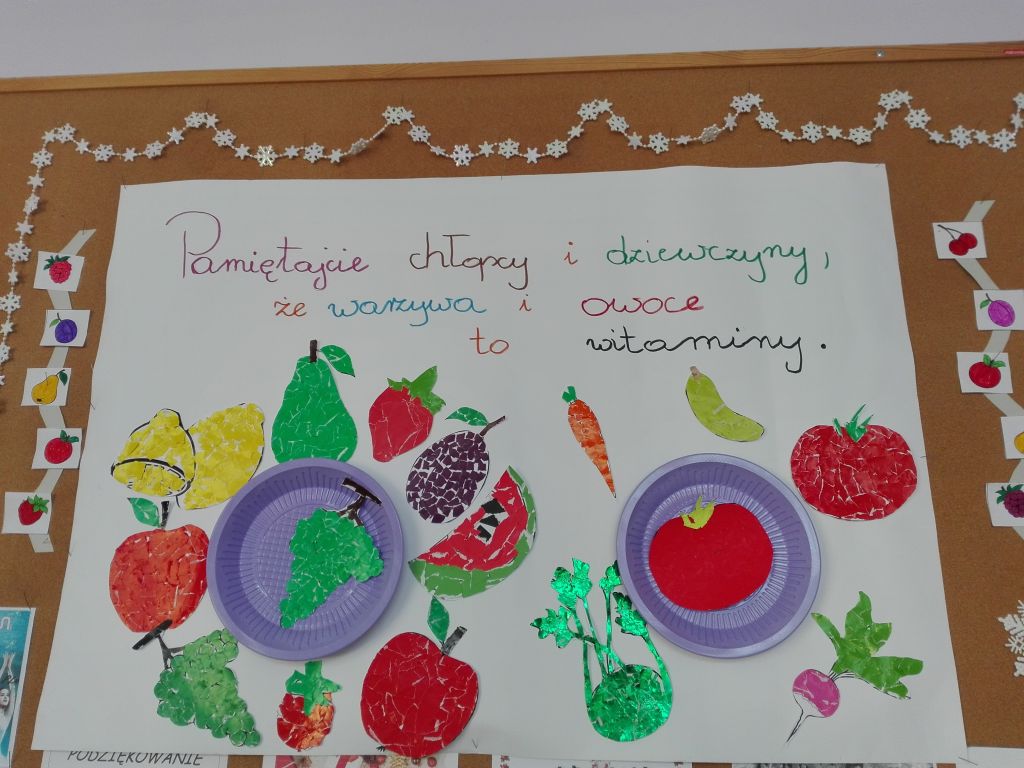 Pamiętajcie chłopcy i dziewczyny,
że warzywa i owoce
to witaminy.
PODZIĘKOWANIE